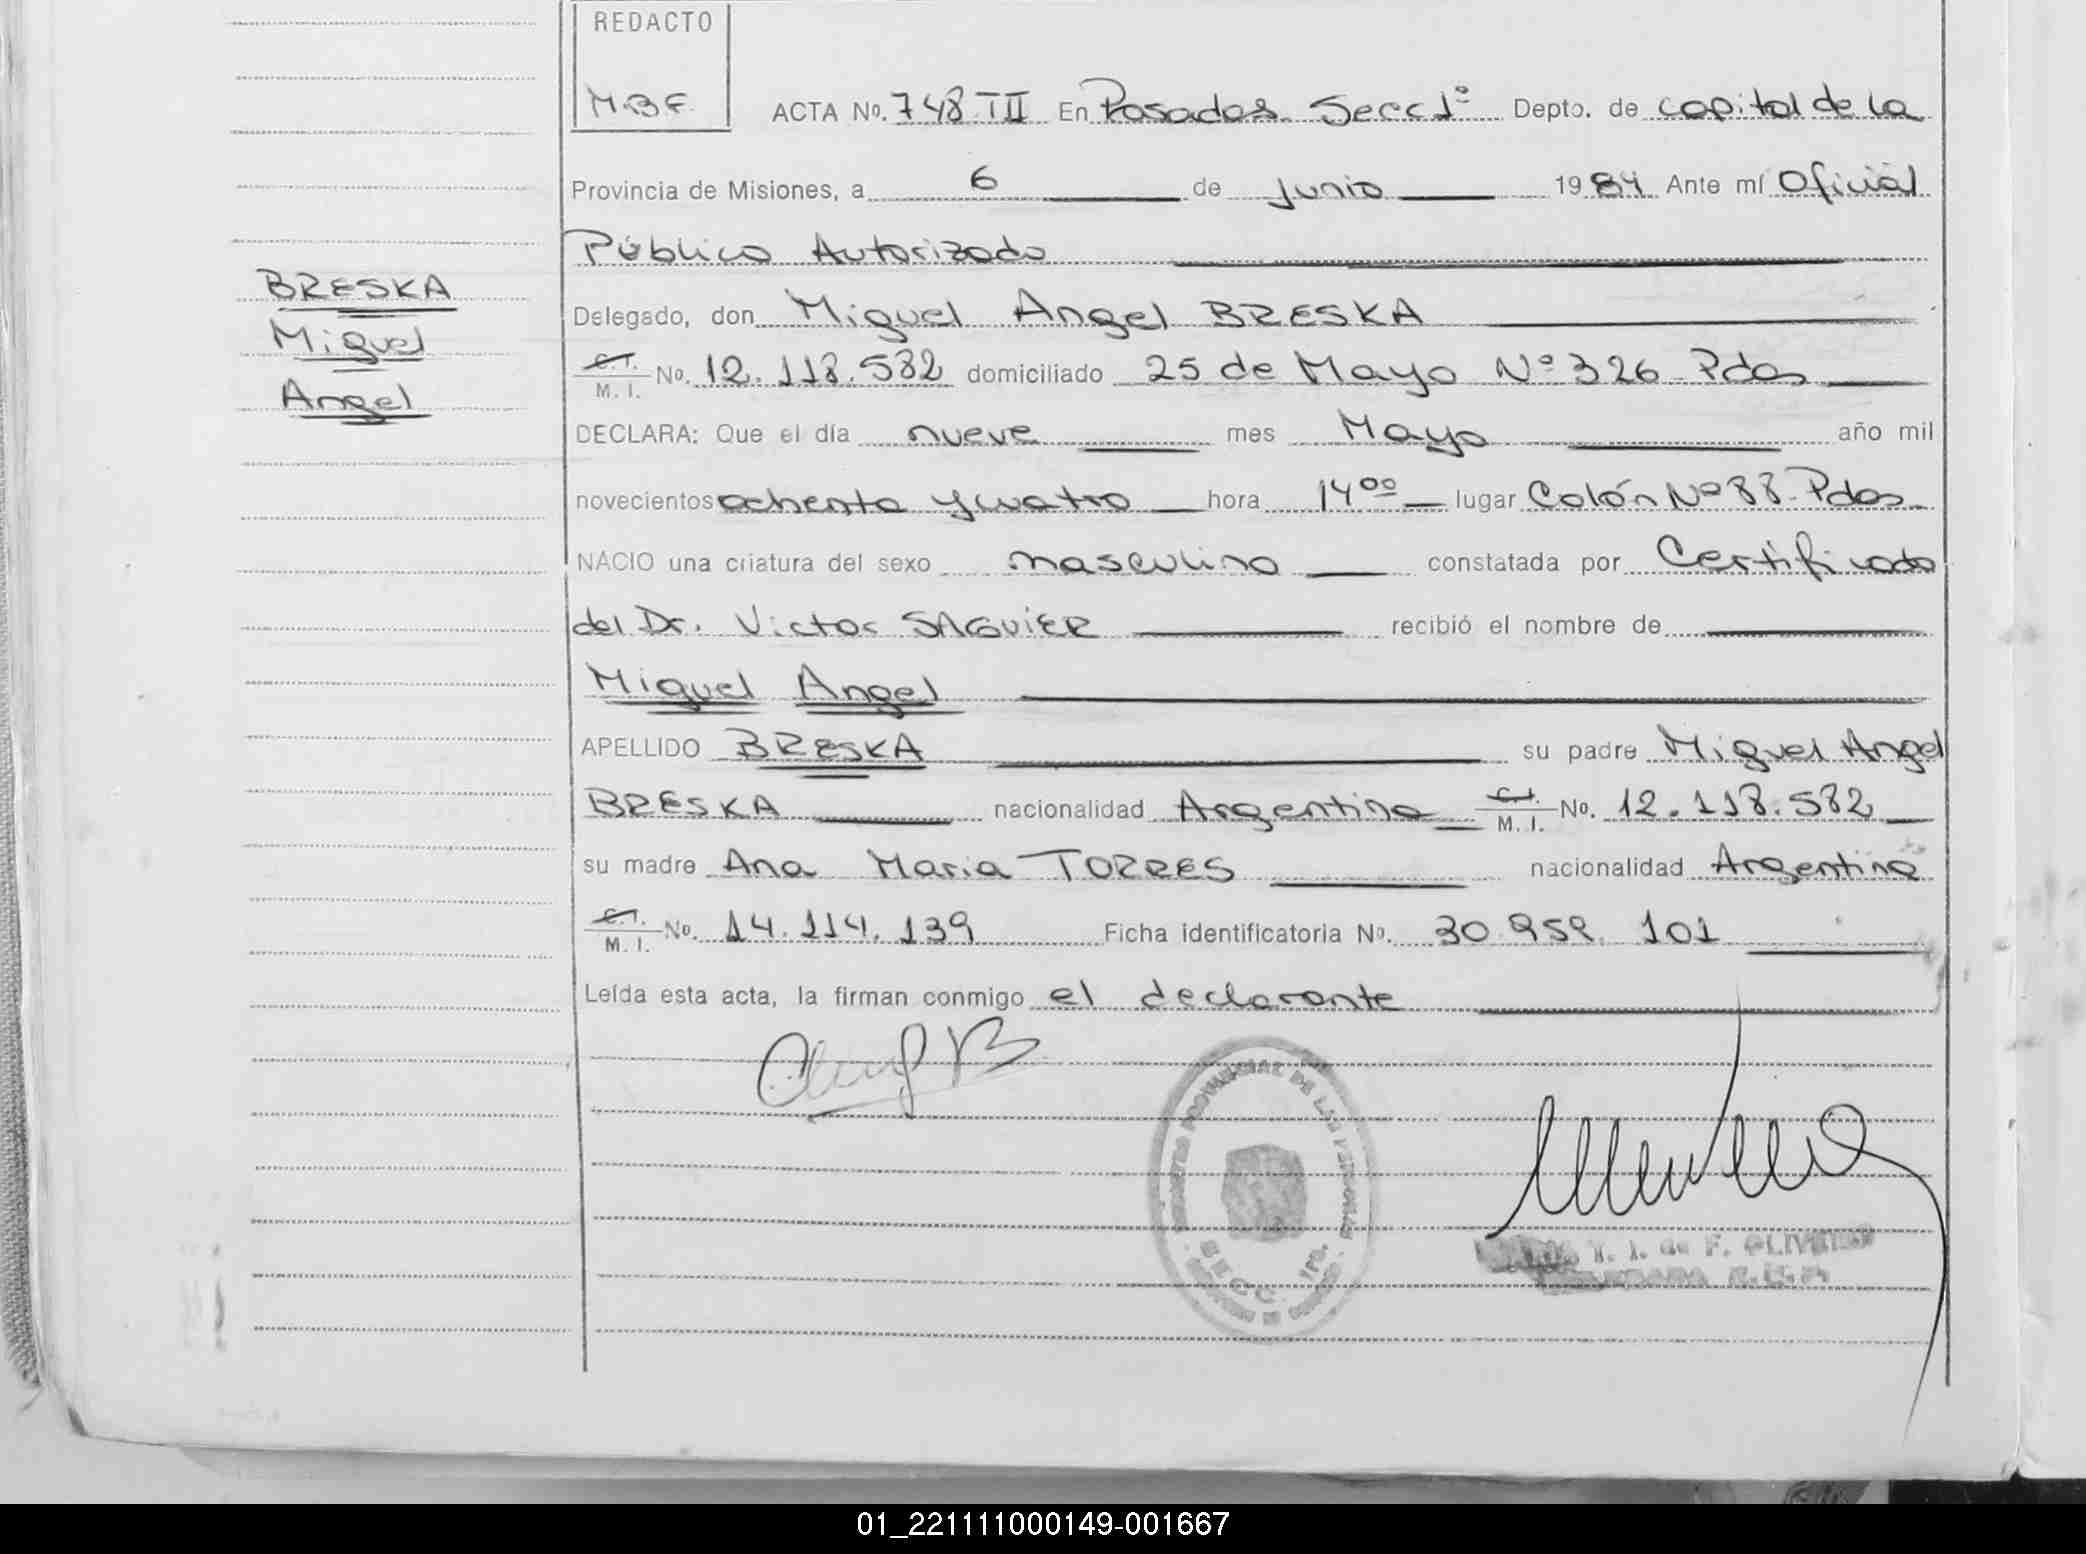 REDACTO
M.B.F.
ACTA No. 748 TII En Posadas Secc 1º Depto. de capital de la
Provincia de Misiones, a 6 de junio 1984 Ante mí Oficial
Público Autorizado
BRESKA
Miguel
Angel
Delegado, don Miguel Angel BRESKA
C.I. M. I. No. 12.118.582 domiciliado 25 de Mayo Nº 326 Pdas
DECLARA: Que el día nueve mes Mayo año mil
novecientos ochenta y cuatro hora 14⁰⁰ lugar Colón Nº 88 - Pdas
NACIO una criatura del sexo masculino constatada por Certificado
del Dr. Victor SAGUIER recibió el nombre de
Miguel Angel
APELLIDO BRESKA su padre Miguel Angel
BRESKA nacionalidad Argentina C.I. M. I. No. 12.118.582
su madre Ana Maria TORRES nacionalidad Argentina
C.I. M. I. No. 14.114.139 Ficha identificatoria No. 30 959 101
Leída esta acta, la firman conmigo el declarante
PROVINCIAL DE LAS PERSONAS
SECC. 1ra.
Y. I. de F. OLIVEIRA
01_221111000149-001667